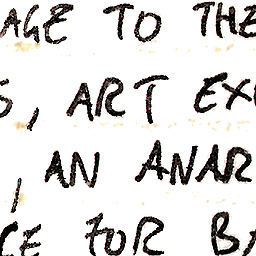 AGE TO THE
S, ART EX
, AN ANAR
CE FOR BA